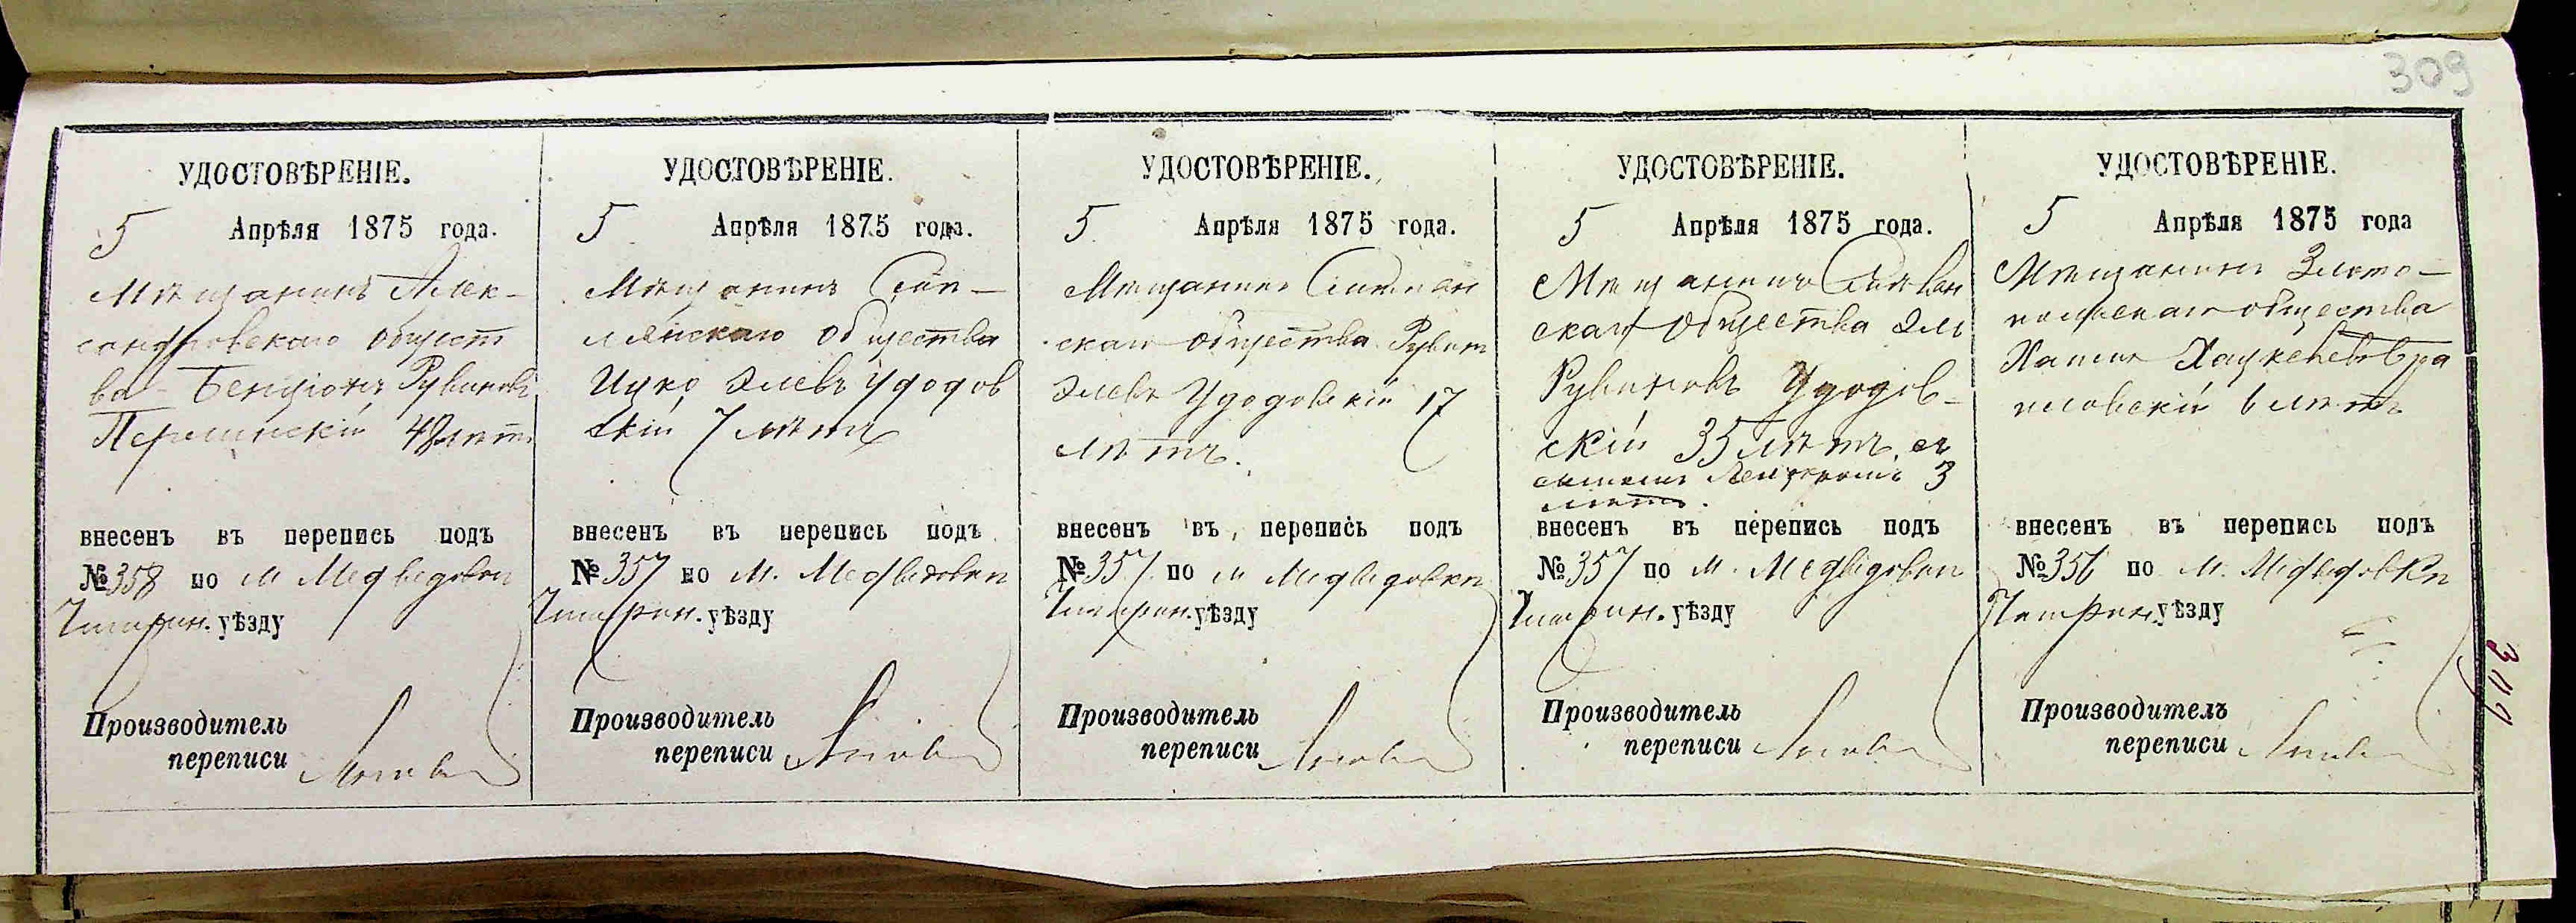 309
УДОСТОВѢРЕНІЕ.
5 Апрѣля 1875 года.
Мѣщанинъ Алек-
сандровскаго общест
ва Бенціонъ Рувиновъ
48 лѣтъ
внесенъ въ перепись подъ
№ 358 по м Медведовки
Чигирин. уѣзду
Производитель
переписи
УДОСТОВѢРЕНІЕ.
5 Апрѣля 1875 года.
Мѣщанинъ
общества
Ицко Элевъ Удодов
скій 7 лѣтъ
внесенъ въ перепись подъ
№ 357 по м. Медведовки
Чигирин. уѣзду
Производитель
переписи
УДОСТОВѢРЕНІЕ.
5 Апрѣля 1875 года.
Мѣщанинъ
скаго общества Рувинъ
Элевъ Удодовскій 17
лѣтъ.
внесенъ въ перепись подъ
№ 357 по м Медведовки
Чигирин. уѣзду
Производитель
переписи
УДОСТОВѢРЕНІЕ.
5 Апрѣля 1875 года.
Мѣщанинъ
скаго общества Эль
Рувиновъ Удодов-
скій 35 лѣтъ, съ
сыномъ 3
лѣтъ.
внесенъ въ перепись подъ
№ 357 по м. Медведовки
Чигирин. уѣзду
Производитель
переписи
УДОСТОВѢРЕНІЕ.
5 Апрѣля 1875 года
Мѣщанинъ Злато-
польскаго общества
6 лѣтъ
внесенъ въ перепись подъ
№ 356 по м. Медведовки
Чигирин. уѣзду
Производитель
переписи